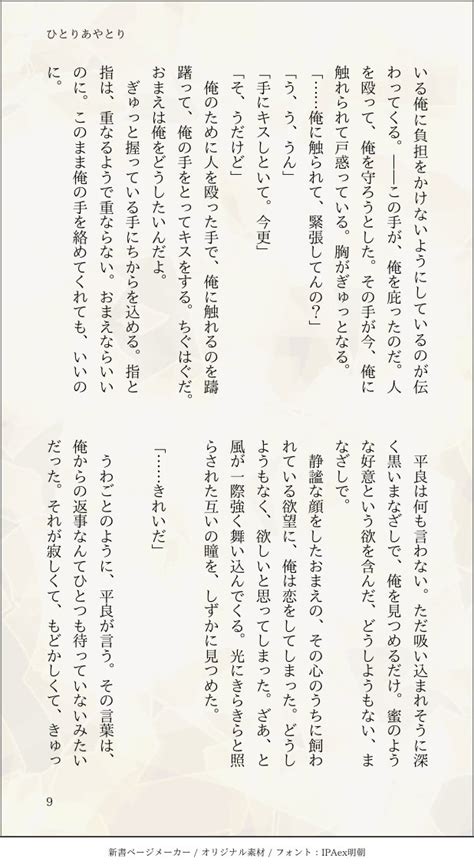 ひとりあやとり
いる俺に負担をかけないようにしているのが伝
わってくる。――この手が、俺を庇ったのだ。人
を殴って、俺を守ろうとした。その手が今、俺に
触れられて戸惑っている。胸がぎゅっとなる。
「……俺に触られて、緊張してんの？」
「う、う、うん」
「手にキスしといて。今更」
「そ、うだけど」
俺のために人を殴った手で、俺に触れるのを躊
躇って、俺の手をとってキスをする。ちぐはぐだ。
おまえは俺をどうしたいんだよ。
ぎゅっと握っている手にちからを込める。指と
指は、重なるようで重ならない。おまえならいい
のに。このまま俺の手を絡めてくれても、いいの
に。
平良は何も言わない。ただ吸い込まれそうに深
く黒いまなざしで、俺を見つめるだけ。蜜のよう
な好意という欲を含んだ、どうしようもない、ま
なざしで。
静謐な顔をしたおまえの、その心のうちに飼わ
れている欲望に、俺は恋をしてしまった。どうし
ようもなく、欲しいと思ってしまった。ざあ、と
風が一際強く舞い込んでくる。光にきらきらと照
らされた互いの瞳を、しずかに見つめた。
「……きれいだ」
うわごとのように、平良が言う。その言葉は、
俺からの返事なんてひとつも待っていないみたい
だった。それが寂しくて、もどかしくて、きゅっ
9
新書ページメーカー / オリジナル素材 / フォント：IPAex明朝